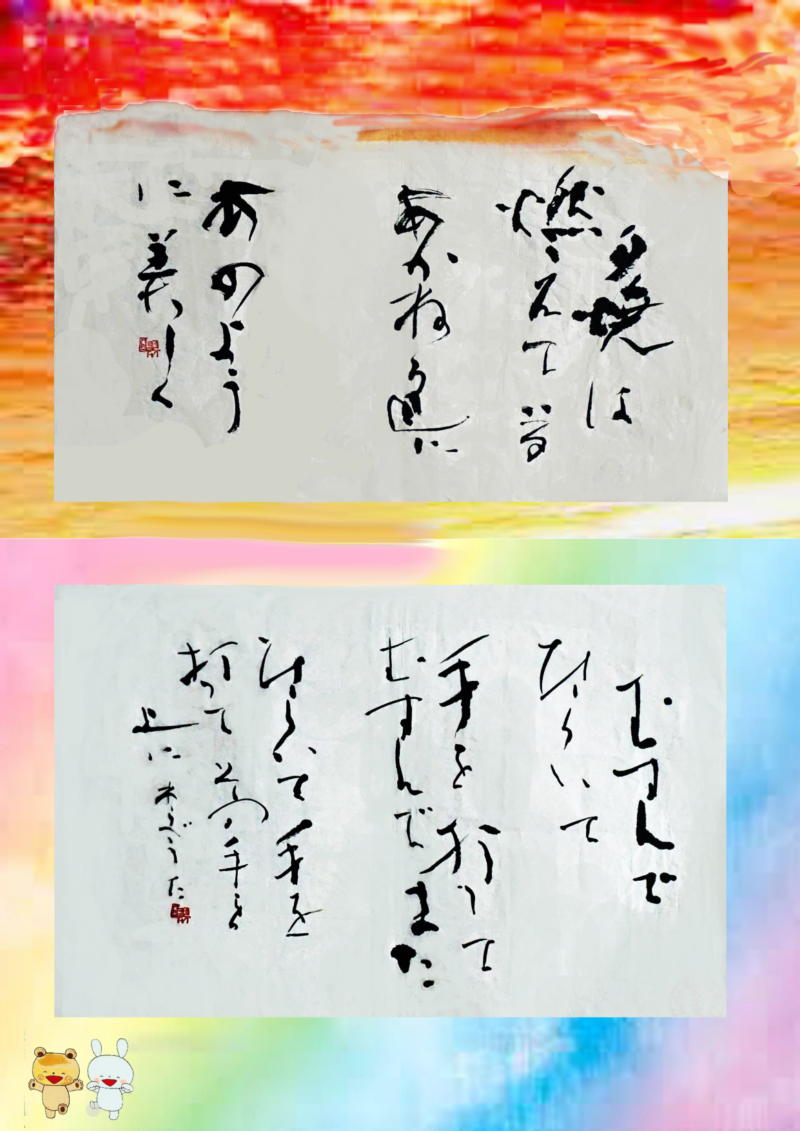 夕焼は
燃えている
あかね色に
あのよう
に美しく
むすんで
ひらいて
手を打って
むすんでまた
ひらいて手を
打ってその手を
上に
わらべうた